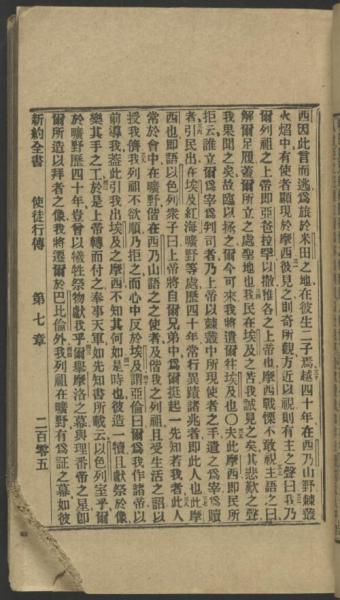 西因此言而逃爲旅於米田之地在彼生二子焉越四十年在西乃山野棘叢
火熖中有使者顯現於摩西彼見之則奇所觀方近以視則有主之聲曰我乃
爾列祖之上帝即亞伯拉罕以撒雅各之上帝也摩西戰慄不敢視主語之曰
解爾足履蓋爾所立之處聖地也我民在埃及之苦我誠見之矣其悲歎之聲
我果聞之矣故臨以拯之爾今可來我將遣爾往埃及也〇夫此摩西即民所
拒云誰立爾爲宰爲判司者乃上帝以棘叢中所現使者之手遣之爲宰爲贖
者引民出在埃及紅海曠野等處歷四十年常行異蹟諸兆者即此人也此摩
西也即語以色列衆子曰上帝將自爾兄弟中爲爾挺起一先知若我者此人
常於會中在曠野偕在西乃山語之之使者及偕我之列祖且受生活之詔以
授我儕我列祖不欲順乃拒之而心中反於埃及謂亞倫曰爾爲我作諸帝以
前導我蓋此引我出埃及之摩西不知其何如是時也彼造一犢且獻祭於像
樂其手之工於是上帝轉而付之奉事天軍如先知書所載云以色列室乎爾
於曠野歷四十年豈曾以犧牲祭物獻我乎爾舉摩洛之幕與理番帝之星卽
爾所造以拜者之像我將遷爾於巴比倫外我列祖在曠野有爲証之幕如彼
新約全書 使徒行傳 第七章 二百零五